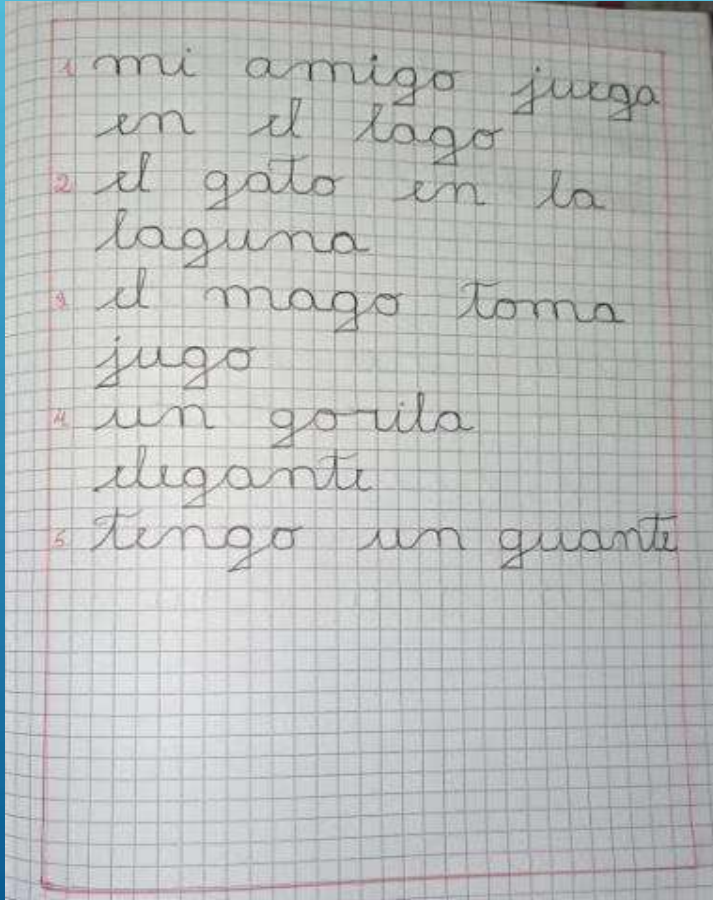 1 mi amigo juega
en el lago
2 el gato en la
laguna
3 el mago toma
jugo
4 un gorila
elegante
5 tengo un guante